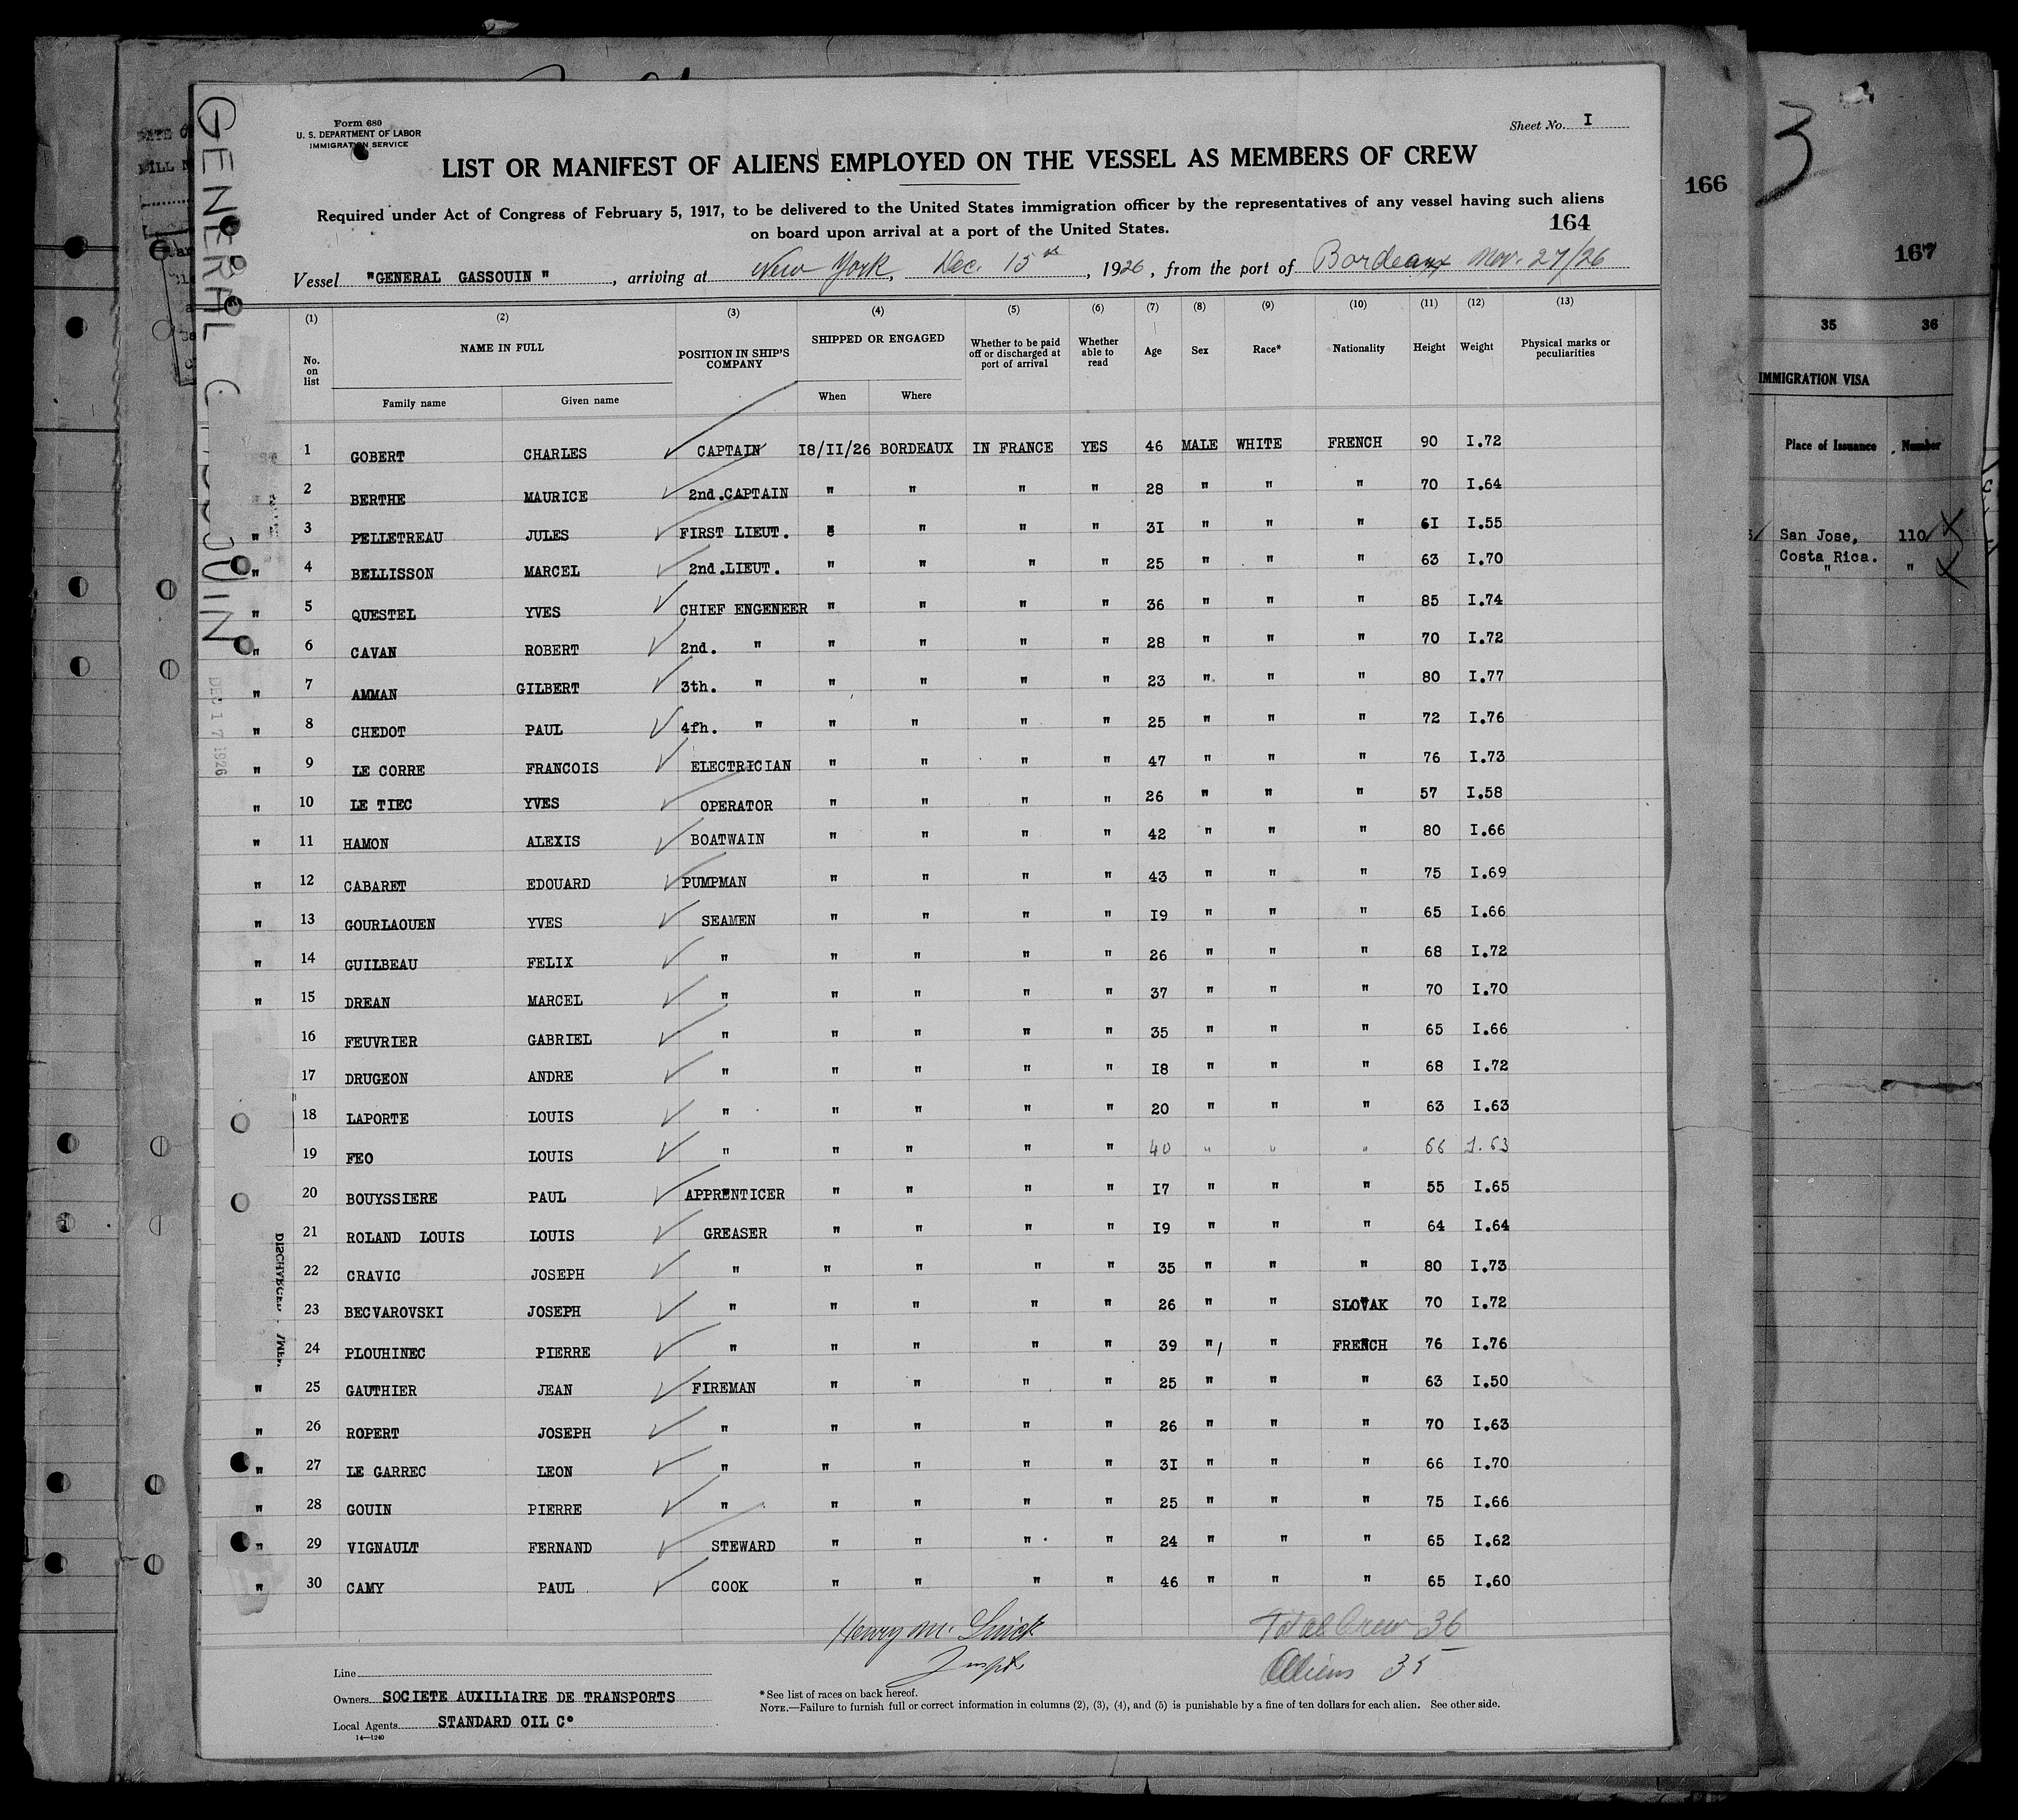 Form 680
U. S. DEPARTMENT OF LABOR
IMMIGRATION SERVICE
Sheet No. I
LIST OR MANIFEST OF ALIENS EMPLOYED ON THE VESSEL AS MEMBERS OF CREW
Required under Act of Congress of February 5, 1917, to be delivered to the United States immigration officer by the representatives of any vessel having such aliens
on board upon arrival at a port of the United States.
164
166
167
3
Vessel "GENERAL GASSOUIN ", arriving at New York, Dec. 15th, 1926, from the port of Bordeaux Nov. 27/26
(1) (2) (3) (4) (5) (6) (7) (8) (9) (10) (11) (12) (13)
No. on list NAME IN FULL POSITION IN SHIP'S COMPANY SHIPPED OR ENGAGED Whether to be paid off or discharged at port of arrival Whether able to read Age Sex Race* Nationality Height Weight Physical marks or peculiarities
Family name Given name When Where
1 GOBERT CHARLES CAPTAIN I8/II/26 BORDEAUX IN FRANCE YES 46 MALE WHITE FRENCH 90 I.72
2 BERTHE MAURICE 2nd.CAPTAIN " " " " 28 " " " 70 I.64
" 3 PELLETREAU JULES FIRST LIEUT. " " " " 3I " " " 6I I.55
" 4 BELLISSON MARCEL 2nd.LIEUT. " " " " 25 " " " 63 I.70
" 5 QUESTEL YVES CHIEF ENGENEER " " " " 36 " " " 85 I.74
" 6 CAVAN ROBERT 2nd. " " " " " 28 " " " 70 I.72
" 7 AMMAN GILBERT 3th. " " " " " 23 " " " 80 I.77
" 8 CHEDOT PAUL 4fh. " " " " " 25 " " " 72 I.76
" 9 LE CORRE FRANCOIS ELECTRICIAN " " " " 47 " " " 76 I.73
" 10 LE TIEC YVES OPERATOR " " " " 26 " " " 57 I.58
" 11 HAMON ALEXIS BOATWAIN " " " " 42 " " " 80 I.66
" 12 CABARET EDOUARD PUMPMAN " " " " 43 " " " 75 I.69
" 13 GOURLAOUEN YVES SEAMEN " " " " I9 " " " 65 I.66
" 14 GUILBEAU FELIX " " " " " 26 " " " 68 I.72
" 15 DREAN MARCEL " " " " " 37 " " " 70 I.70
16 FEUVRIER GABRIEL " " " " " 35 " " " 65 I.66
17 DRUGEON ANDRE " " " " " I8 " " " 68 I.72
18 LAPORTE LOUIS " " " " " 20 " " " 63 I.63
19 FEO LOUIS " " " " " 40 " " " 66 1.63
20 BOUYSSIERE PAUL APPRENTICER " " " " I7 " " " 55 I.65
21 ROLAND LOUIS LOUIS GREASER " " " " I9 " " " 64 I.64
22 CRAVIC JOSEPH " " " " " 35 " " " 80 I.73
23 BECVAROVSKI JOSEPH " " " " " 26 " " SLOVAK 70 I.72
24 PLOUHINEC PIERRE " " " " " 39 " " FRENCH 76 I.76
" 25 GAUTHIER JEAN FIREMAN " " " " 25 " " " 63 I.50
" 26 ROPERT JOSEPH " " " " " 26 " " " 70 I.63
" 27 LE GARREC LEON " " " " " 3I " " " 66 I.70
" 28 GOUIN PIERRE " " " " " 25 " " " 75 I.66
" 29 VIGNAULT FERNAND STEWARD " " " " 24 " " " 65 I.62
" 30 CAMY PAUL COOK " " " " 46 " " " 65 I.60
Total Crew 36
Aliens 35
Line
Owners SOCIETE AUXILIAIRE DE TRANSPORTS
Local Agents STANDARD OIL C°
14—1240
* See list of races on back hereof.
NOTE.—Failure to furnish full or correct information in columns (2), (3), (4), and (5) is punishable by a fine of ten dollars for each alien. See other side.
GENERAL
DEC 17 1926
35 36
IMMIGRATION VISA
Place of Issuance Number
San Jose, 110
Costa Rica.
" "